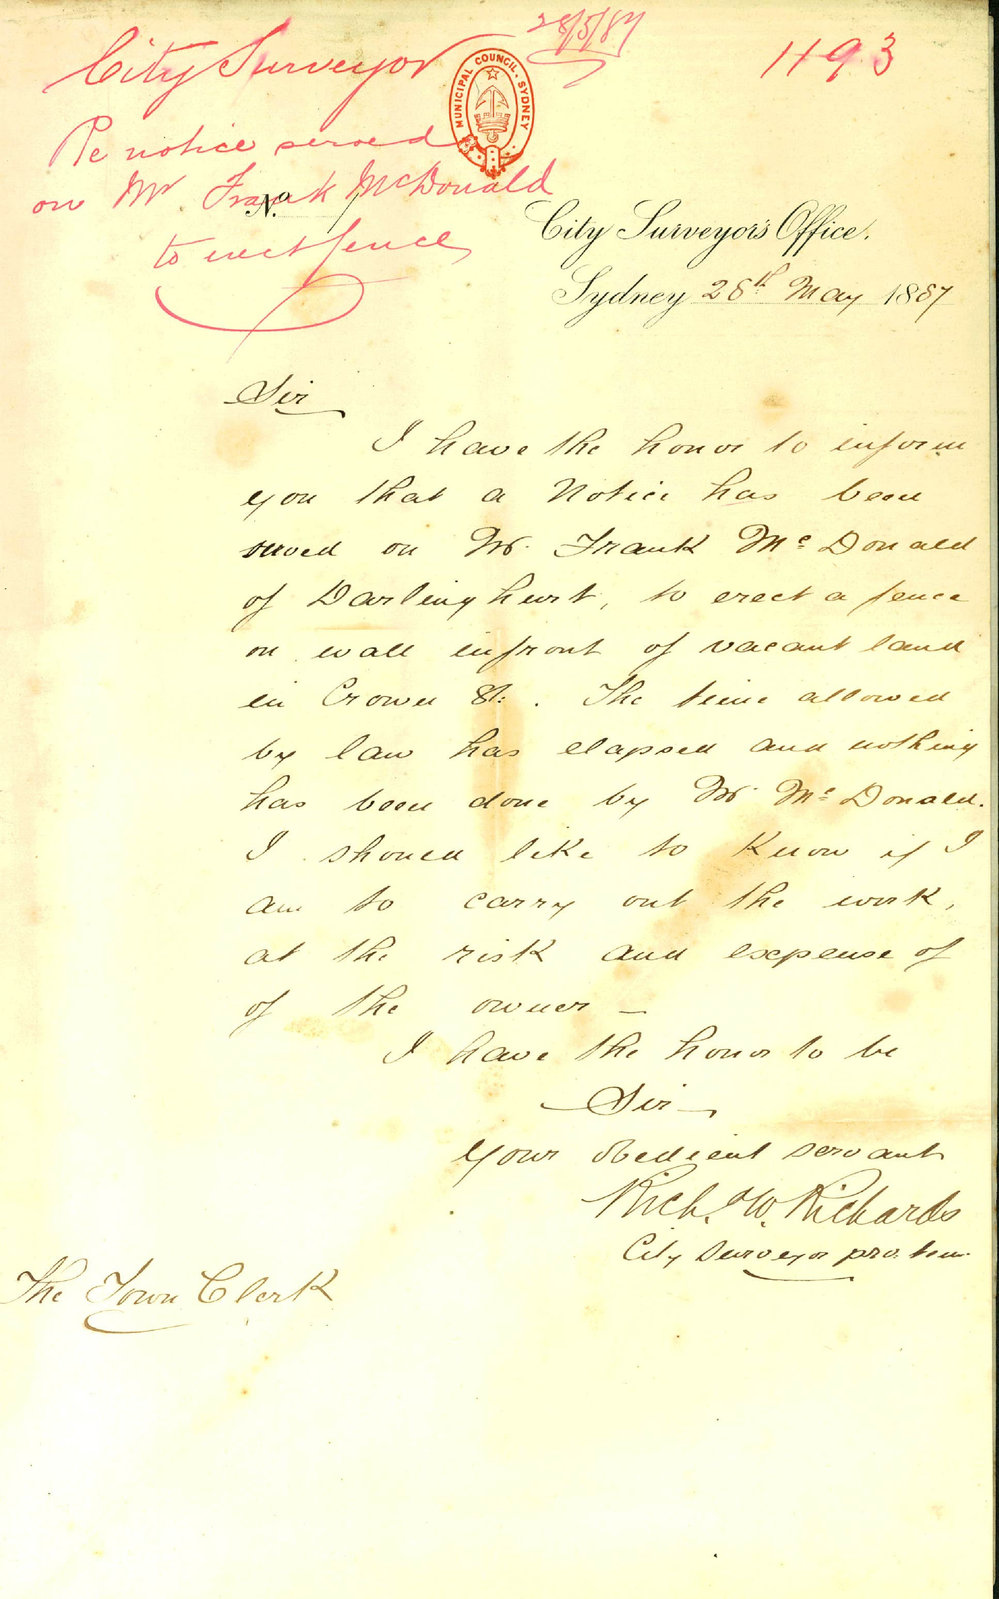 28/5/87
City Surveyor
1193
MUNICIPAL COUNCIL. SYDNEY
Re notice served
on Mr. Frank McDonald
No.
to erect fence
City Surveyor's Office.
Sydney 28th May 1887
Sir
I have the honor to inform
you that a Notice has been
served on Mr. Frank McDonald
of Darlinghurst, to erect a fence
or wall infront of vacant land
in Crown St: . The time allowed
by law has elapsed and nothing
has been done by Mr McDonald.
I should like to know if I
am to carry out the work,
at the risk and expense of
of the owner —
I have the honor to be
Sir
Your obedient servant
Rich. W. Richards
City Surveyor pro. tem.
The Town Clerk